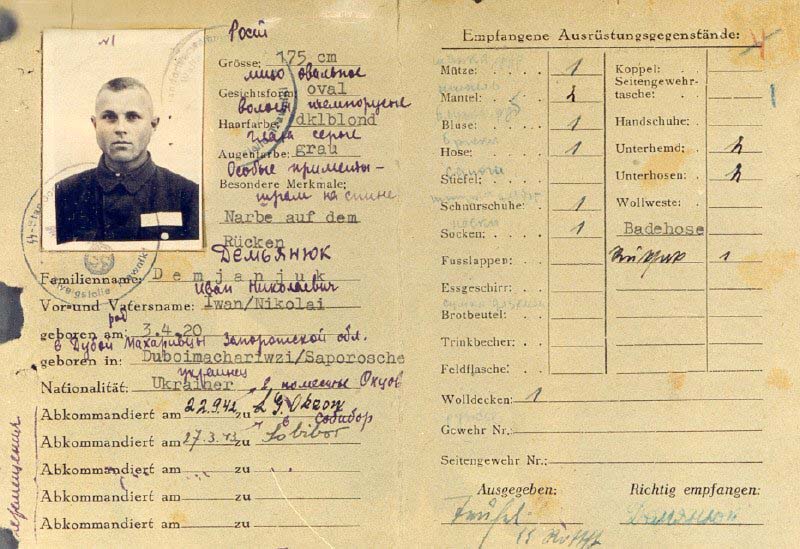 №1
Рост
Grösse: 175 cm
лицо овальное
Gesichtsform: oval
волосы темнорусые
Haarfarbe: dklblond
глаза серые
Augenfarbe: grau
Особые приметы-
Besondere Merkmale:
шрам на спине
Narbe auf dem
Rücken
ДЕМЬЯНЮК
Familienname: Demjanjuk
Иван Николаевич
Vor-und Vatersname: Iwan/Nikolai
род
geboren am: 3.4.20
в Дубой Махаривцы Запорожской обл.
geboren in: Duboimachariwzi/Saporosche
украинец
Nationalität: Ukrainer
в поместье Окцов
Abkommandiert am 22.9.42 zu L.G. Okzow
в Собибор
Abkommandiert am 27.3.43 zu Sobibor
Abkommandiert am zu
Abkommandiert am zu
Abkommandiert am zu
Перемещения
Empfangene Ausrüstungsgegenstände:
Mütze: 1
Mantel: 2
Bluse: 1
Hose: 1
Stiefel:
Schnürschuhe: 1
Socken: 1
Fusslappen:
Essgeschirr:
Brotbeutel:
Trinkbecher:
Feldflasche:
Wolldecken: 1
Gewehr Nr.:
Seitengewehr Nr.:
Koppel:
Seitengewehr-
tasche: 1
Handschuhe:
Unterhemd: 2
Unterhosen: 2
Wollweste:
Badehose
1
Ausgegeben:
Richtig empfangen: